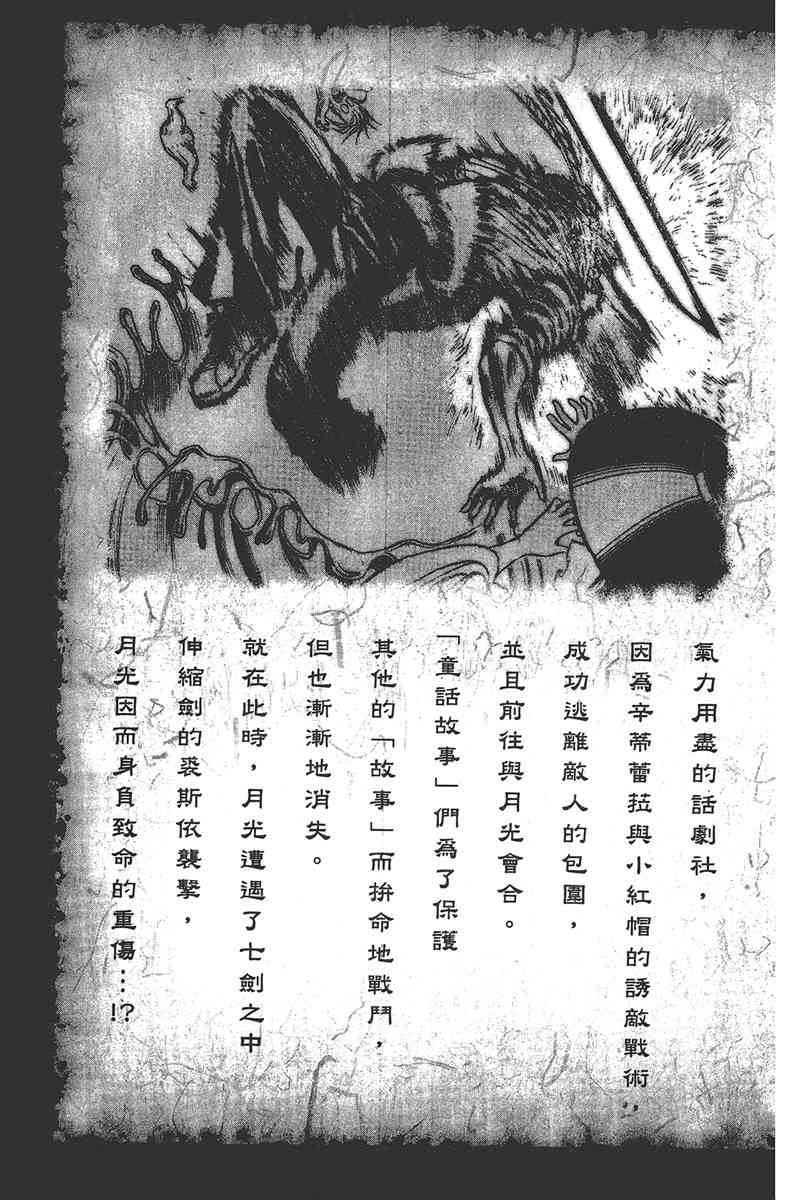 氣力用盡的話劇社，
因為辛蒂蕾菈與小紅帽的誘敵戰術，
成功逃離敵人的包圍，
並且前往與月光會合。
「童話故事」們為了保護
其他的「故事」而拚命地戰鬥，
但也漸漸地消失。
就在此時，月光遭遇了七劍之中
伸縮劍的裘斯依襲擊，
月光因而身負致命的重傷…!?